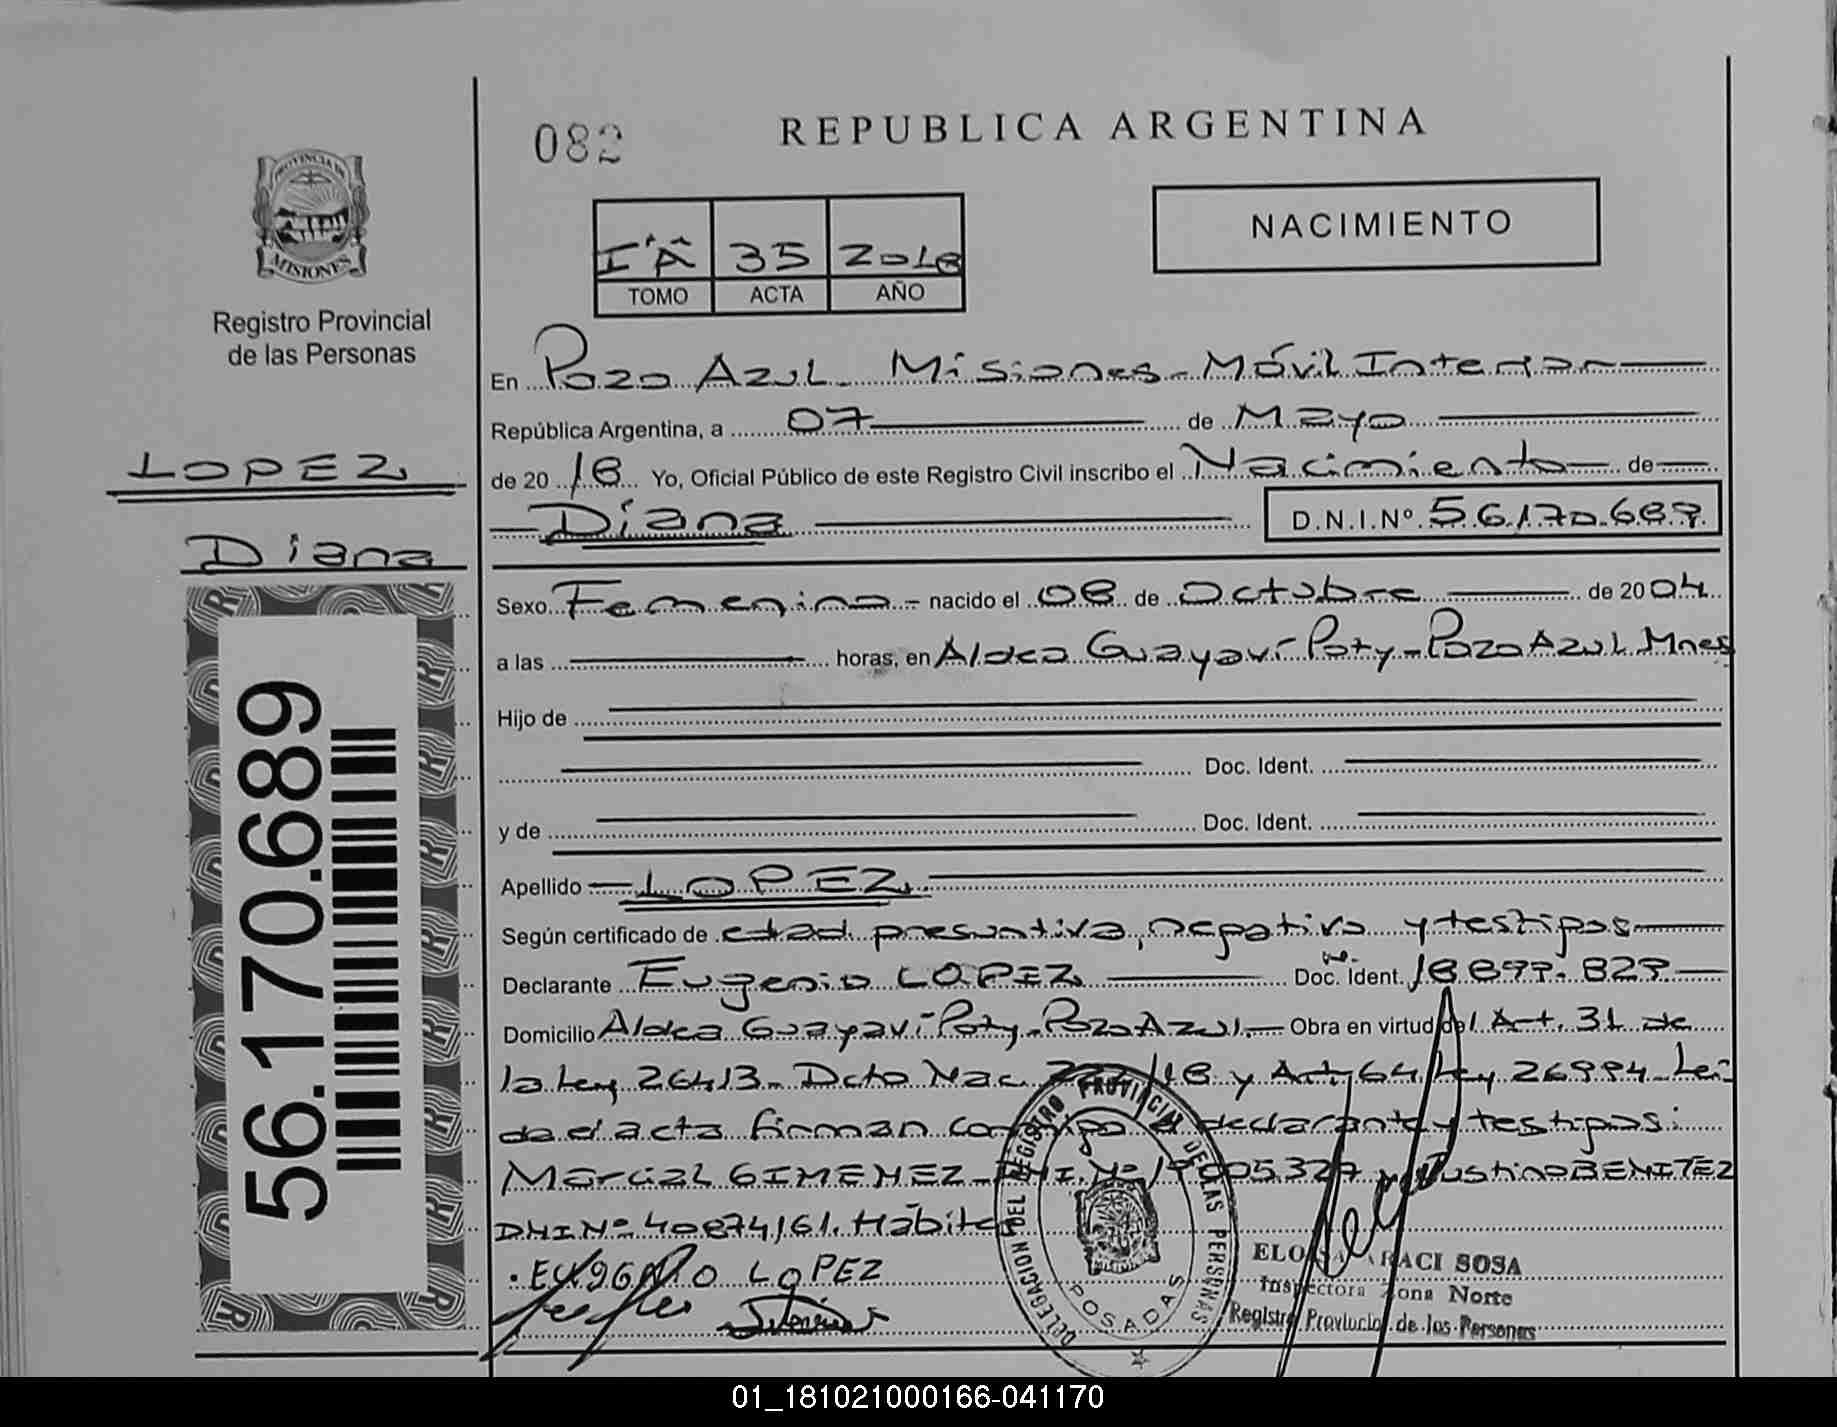 082
REPUBLICA ARGENTINA
PROVINCIA DE
MISIONES
Registro Provincial
de las Personas
I "A" 35 2018
TOMO ACTA AÑO
NACIMIENTO
LOPEZ
Diana
56.170.689
En Pozo Azul - Misiones - Móvil Interior
República Argentina, a 07 de Mayo
de 20 18 Yo, Oficial Público de este Registro Civil inscribo el Nacimiento de
Diana D.N.I.Nº 56.170.689
Sexo Femenino - nacido el 08 de Octubre de 2004
a las horas, en Aldea Guayaví Poty - Pozo Azul Mnes
Hijo de
Doc. Ident.
y de Doc. Ident.
Apellido LOPEZ
Según certificado de edad presuntiva, negativo y testigos
Declarante Eugenio LOPEZ Doc. Ident. 18.899.829
Domicilio Aldea Guayaví Poty - Pozo Azul. Obra en virtud del Art. 31 de
la Ley 26413 - Dcto Nac /18 y Art. 64 Ley 26994 - Leí
da el acta firman conmigo el declarante y testigos:
Marcial GIMENEZ - DNI. Nº 05.327 y Justino BENITEZ
DNI Nº 40874161. Hábiles
EUGENIO LOPEZ
DELEGACION DEL REGISTRO PROVINCIAL DE LAS PERSONAS
POSADAS
ELOISA ARACI SOSA
Inspectora Zona Norte
Registro Provincial de las Personas
01_181021000166-041170